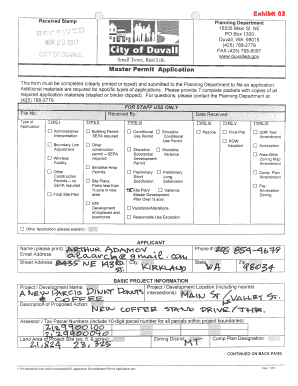 Exhibit 02
Received Stamp
RECEIVED
NOV 20 2017
CITY OF DUVALL
City of Duvall
Small Town. Real Life.
Planning Department
15535 Main St. NE
PO Box 1300
Duvall, WA 98019
(425) 788-2779
FAX (425) 788-8097
www.duvallwa.gov
Master Permit Application
This form must be completed (clearly printed or typed) and submitted to the Planning Department to file an application.
Additional materials are required for specific types of applications. Please provide 7 complete packets with copies of all
required application materials (stapled or binder clipped). For questions, please contact the Planning Department at
(425) 788-2779.
FOR STAFF USE ONLY
File No.
Received By:
Date Received:
Type of Application
TYPE I
Administrative Interpretation
Boundary Line Adjustment
Wireless Facility
Other Construction Permits – no SEPA required
Final Site Plan
TYPE II
Building Permit SEPA required
Other construction permit – SEPA required
Sensitive Area Permits
Site Plans, Prelim less than ½ acre in new area
Infill Development of duplexes and townhome
TYPE III
Conditional Use Permit
Shoreline Conditional Use Permit
Shoreline Substantial Development Permit
Shoreline Variance
Preliminary Short Subdivision
Preliminary Long Subdivision
Site Plan/ Master Development Plan Over ½ acre
Variance
Vacations/Alterations
Reasonable Use Exception
TYPE IV
Rezone
Final Plat
ROW Vacation
TYPE V
UDR Text Amendment
Annexation
Area-Wide Zoning Map Amendment
Comp Plan Amendment
Pre-Annexation Zoning
Other Application (please explain)
APPLICANT
Name (please print) ARTHUR ADAMOV
Phone # 206 854-4679
Email Address
Street Address 8435 NE 143rd ST.
City: KIRKLAND
State WA
Zip 98034
BASIC PROJECT INFORMATION
Project / Development Name:
A NEW
DINKY DONUTS
& COFFEE
Project / Development Location (including nearest intersections):
MAIN ST / VALLEY ST.
Description of Proposed Action:
NEW COFFEE STAND DRIVE / THRU
Assessor / Tax Parcel Numbers (include 10-digit parcel number for all parcels within project boundaries)
Land Area of Project Site (sq. ft. & acres)
21,824 23,325
Zoning District MT
Comp Plan Designation:
CONTINUED ON BACK PAGE